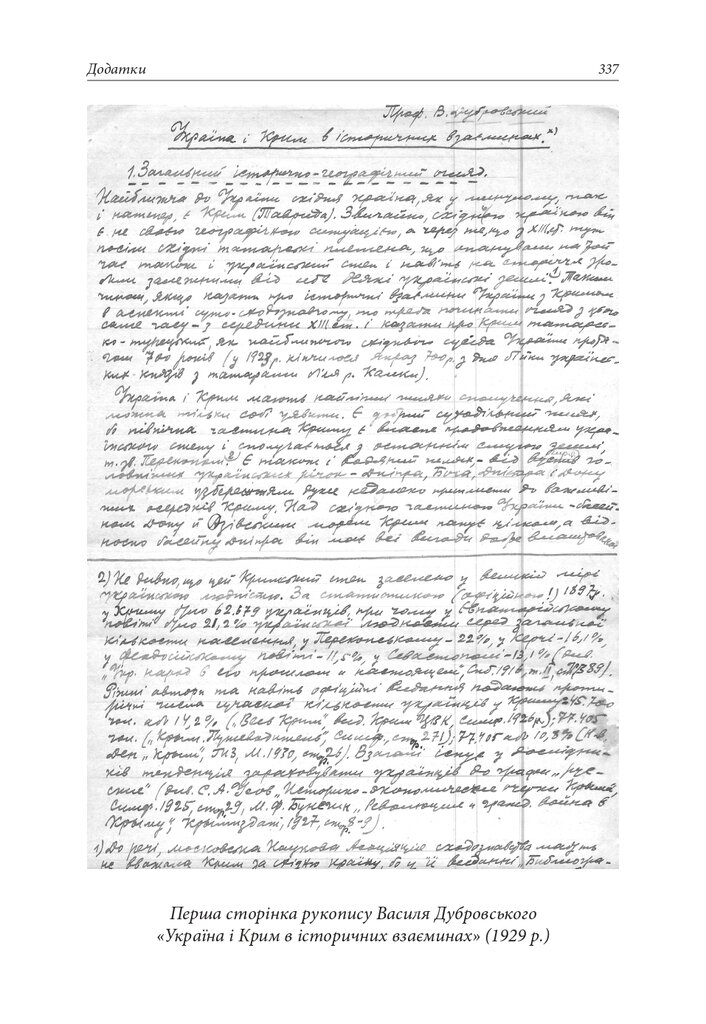 Додатки 337
Проф. В. Дубровський
Україна і Крим в історичних взаєминах.*)
1. Загальний історично-географічний огляд.
Найближча до України східня країна, як у минулому, так
і натепер, є Крим (Таврида). Звичайно, східною країною він
є не своєю географічною ситуацією, а через те, що з XIII ст. тут
посіли східні татарські племена, що опанували на той
час також і український степ і навіть на сторіччя зро-
били залежними від себе деякі українські землі.1) Таким
чином, якщо казати про історичні взаємини України з Кримом
в аспекті суто-сходознавчому, то треба починати огляд з цього
саме часу – з середини XIII ст. і казати про Крим татарсь-
ко-турецький, як найближчого східного сусіда України протя-
гом 700 років (у 1923 р. кінчилося якраз 700 р. з дня бійки українсь-
ких князів з татарами біля р. Калки).
Україна і Крим мають найліпші шляхи сполучення, які
можна тільки собі уявити. Є добрий суходільний шлях,
бо північна частина Криму є власне продовженням укра-
їнського степу і сполучається з останнім смугою землі,
т. зв. Перекопом.2) Є також і водяний шлях – від го-
ловніших українських річок – Дніпра, Бога, Дністра і Дону
морським узбережжям дуже недалеко припливти до важливі-
ших осередків Криму. Над східною частиною України – басей-
ном Дону й Озівським морем Крим панує цілком, а від-
носно басейну Дніпра він має всі вигоди добре влаштованої
2) Не дивно, що цей Кримський степ заселено у великій мірі
українською людністю. За статистикою (офіційною!) 1897 р.
у Криму було 62.879 українців, при чому у Євпаторійському
повіті було 21,2% української людности серед загальної
кількости населення, у Перекопському – 22%, у Керчі – 16,1%,
у Феодосійському повіті – 11,5%, у Севастополі – 13,1% (див.
„Укр. народ в его прошлом и настоящем", Спб. 1916, т. II,
Різні автори та навіть офіційні видання подають проти-
річні числа сучасної кількости українців у Криму:
чол. або 14,2% („Весь Крым" вид. Крим ЦВК, Симф. 1926 р.); 77.405
чол. („Крым. Путеводитель", Симф., стр. 271); 77.405 або 10,8%
„Крым", ГИЗ, М. 1930, стр. 26). Взагалі існує у дослідни-
ків тенденція зараховувати українців до графи „рус-
ские" (див. С. А. Усов „Историко-экономические очерки Крыма,
Симф. 1925, стр. 29, М. Ф. Бунегин „Революция и гражд. война в
Крыму", Крымиздат, 1927, стр. 8-9).
1) До речі, московська Наукова Асоціяція сходознавства мабуть
не вважала Крим за східню країну, бо у її виданні „Библиогра-
Перша сторінка рукопису Василя Дубровського
«Україна і Крим в історичних взаєминах» (1929 р.)